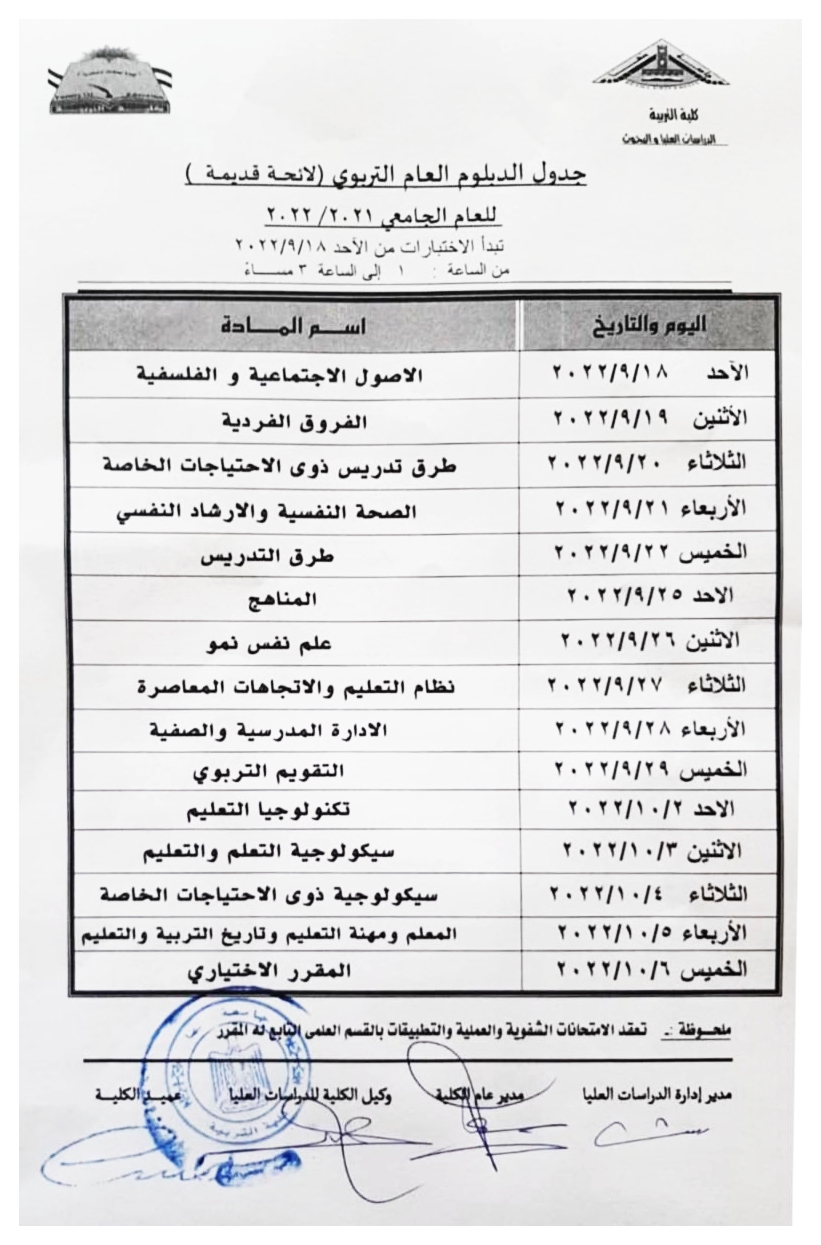 كلية التربية
الدراسات العليا و البحوث
جدول الدبلوم العام التربوي (لائحة قديمة )
للعام الجامعي ٢٠٢١/ ٢٠٢٢
تبدأ الاختبارات من الأحد ٢٠٢٢/٩/١٨
من الساعة : ١ إلى الساعة ٣ مســـاءً
اليوم والتاريخ اســم المــــادة
الأحد ٢٠٢٢/٩/١٨ الاصول الاجتماعية و الفلسفية
الأثنين ٢٠٢٢/٩/١٩ الفروق الفردية
الثلاثاء ٢٠٢٢/٩/٢٠ طرق تدريس ذوى الاحتياجات الخاصة
الأربعاء ٢٠٢٢/٩/٢١ الصحة النفسية والارشاد النفسي
الخميس ٢٠٢٢/٩/٢٢ طرق التدريس
الاحد ٢٠٢٢/٩/٢٥ المناهج
الاثنين ٢٠٢٢/٩/٢٦ علم نفس نمو
الثلاثاء ٢٠٢٢/٩/٢٧ نظام التعليم والاتجاهات المعاصرة
الأربعاء ٢٠٢٢/٩/٢٨ الادارة المدرسية والصفية
الخميس ٢٠٢٢/٩/٢٩ التقويم التربوي
الاحد ٢٠٢٢/١٠/٢ تكنولوجيا التعليم
الاثنين ٢٠٢٢/١٠/٣ سيكولوجية التعلم والتعليم
الثلاثاء ٢٠٢٢/١٠/٤ سيكولوجية ذوى الاحتياجات الخاصة
الأربعاء ٢٠٢٢/١٠/٥ المعلم ومهنة التعليم وتاريخ التربية والتعليم
الخميس ٢٠٢٢/١٠/٦ المقرر الاختياري
ملحــوظة :ـ تعقد الامتحانات الشفوية والعملية والتطبيقات بالقسم العلمى التابع له المقرر
مدير إدارة الدراسات العليا مدير عام الكلية وكيل الكلية للدراسات العليا عميد الكليــة
كلية التربية